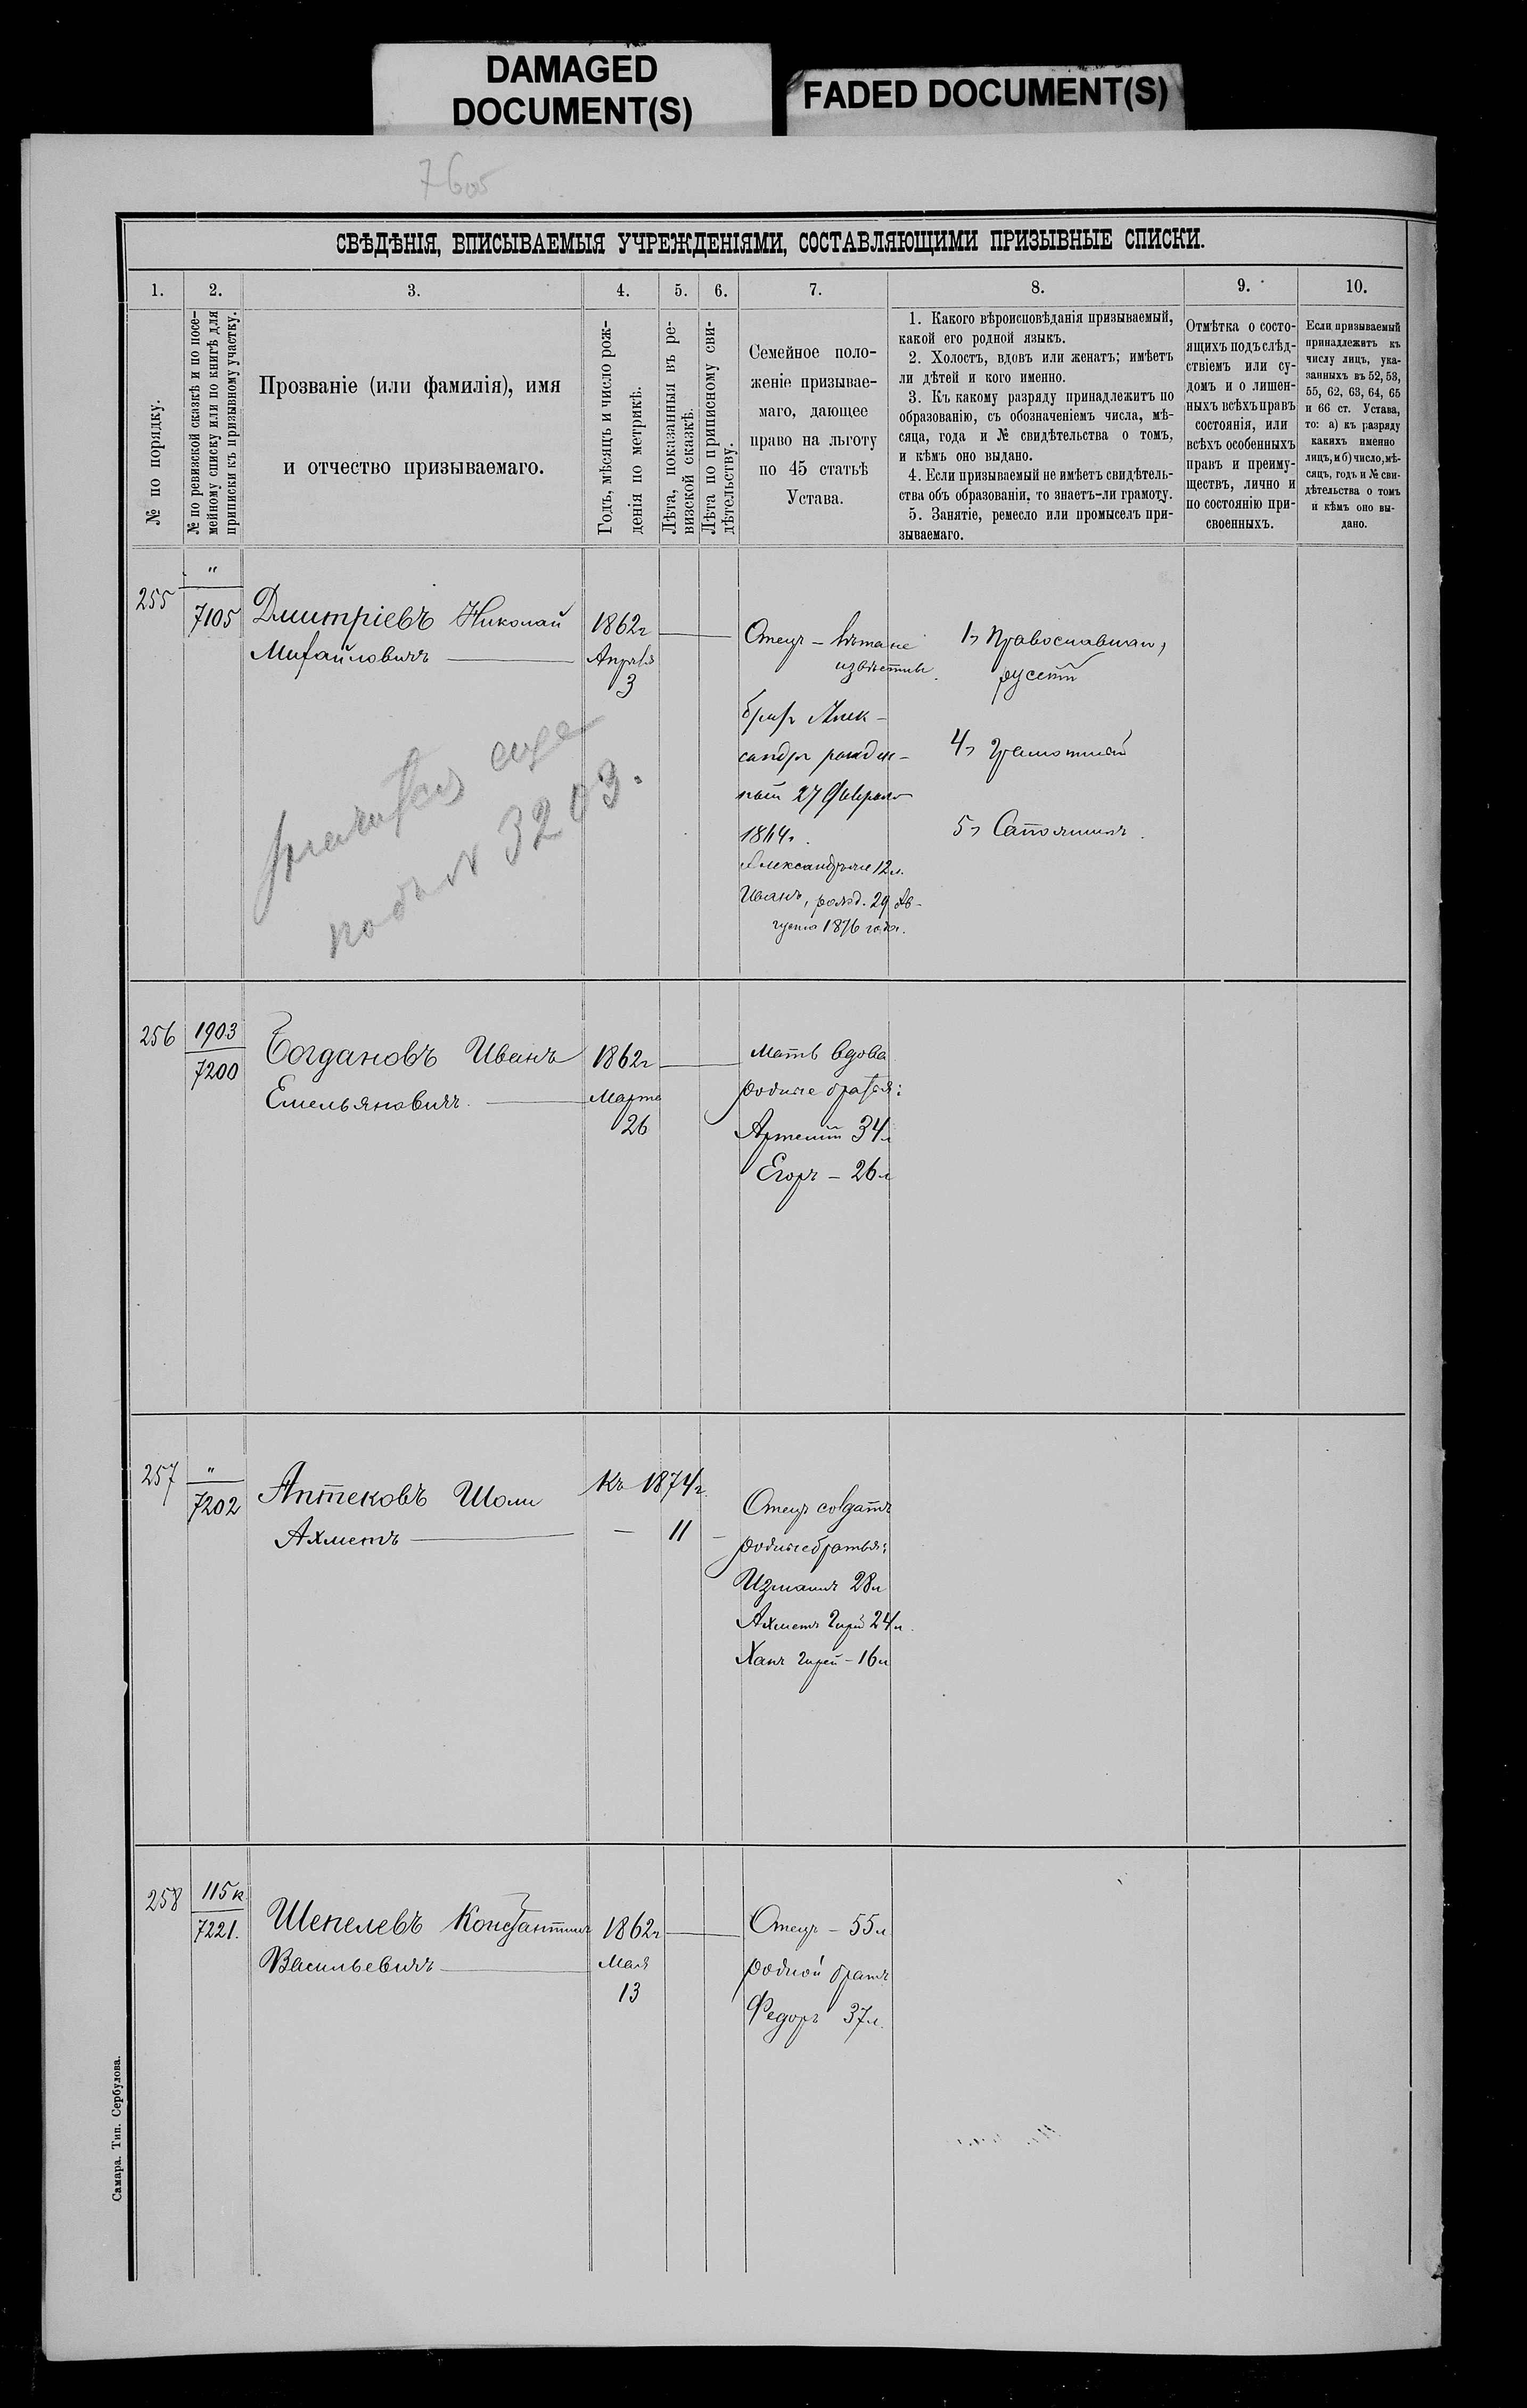 DAMAGED
DOCUMENT(S)
FADED DOCUMENT(S)
СВѢДѢНІЯ, ВПИСЫВАЕМЫЯ УЧРЕЖДЕНІЯМИ, СОСТАВЛЯЮЩИМИ ПРИЗЫВНЫЕ СПИСКИ.
1.
2.
3.
4.
5.
6.
7.
8.
9.
10.
№ по порядку.
№ по ревизской сказкѣ и по посе-
мейному списку или по книгѣ для
приписки къ призывному участку.
Прозваніе (или фамилія), имя
и отчество призываемаго.
Годъ, мѣсяцъ и число рож-
денія по метрикѣ.
Лѣта, показанныя въ ре-
визской сказкѣ.
Лѣта по приписному сви-
дѣтельству.
Семейное поло-
женіе призывае-
маго, дающее
право на льготу
по 45 статьѣ
Устава.
1. Какого вѣроисповѣданія призываемый,
какой его родной языкъ.
2. Холостъ, вдовъ или женатъ; имѣетъ
ли дѣтей и кого именно.
3. Къ какому разряду принадлежитъ по
образованію, съ обозначеніемъ числа, мѣ-
сяца, года и № свидѣтельства о томъ,
и кѣмъ оно выдано.
4. Если призываемый не имѣетъ свидѣтель-
ства объ образованіи, то знаетъ-ли грамоту.
5. Занятіе, ремесло или промыселъ при-
зываемаго.
Отмѣтка о состо-
ящихъ подъ слѣд-
ствіемъ или су-
домъ и о лишен-
ныхъ всѣхъ правъ
состоянія, или
всѣхъ особенныхъ
правъ и преиму-
ществъ, лично и
по состоянію при-
своенныхъ.
Если призываемый
принадлежитъ къ
числу лицъ, ука-
занныхъ въ 52, 53,
55, 62, 63, 64, 65
и 66 ст. Устава,
то: а) къ разряду
какихъ именно
лицъ, и б) число, мѣ-
сяцъ, годъ и № сви-
дѣтельства о томъ
и кѣмъ оно вы-
дано.
255
"
7105
Дмитріевъ Николай
Михайловичъ
1862г
Апрѣля
3
Отецъ – лѣта не
извѣстны.
братъ Алек-
сандръ рожден-
ный 27 Февраля
1864г.
Александръ 12 л.
Иванъ, рожд. 29 Ав-
густа 1876 года.
1, Православный,
русскій
4, Грамотный
5, Сапожникъ.
еще
подъ № 3203.
256
1903
7200
Богдановъ Иванъ
Емельяновичъ.
1862г
Марта
26
Мать вдова
родные братья:
Артемій 34л
Егоръ – 26л
257
"
7202
Аптековъ Шали
Ахметъ
Къ 1874г.
11
Отецъ солдатъ
родные братья:
Измаилъ 28л
Ахметъ Гирей 24л.
Ханъ Гирей – 16л
258
115к
7221.
Шепелевъ Константинъ
Васильевичъ
1862г
Мая
13
Отецъ – 55л
родной братъ
Федоръ 37л.
Самара. Тип. Сербулова.